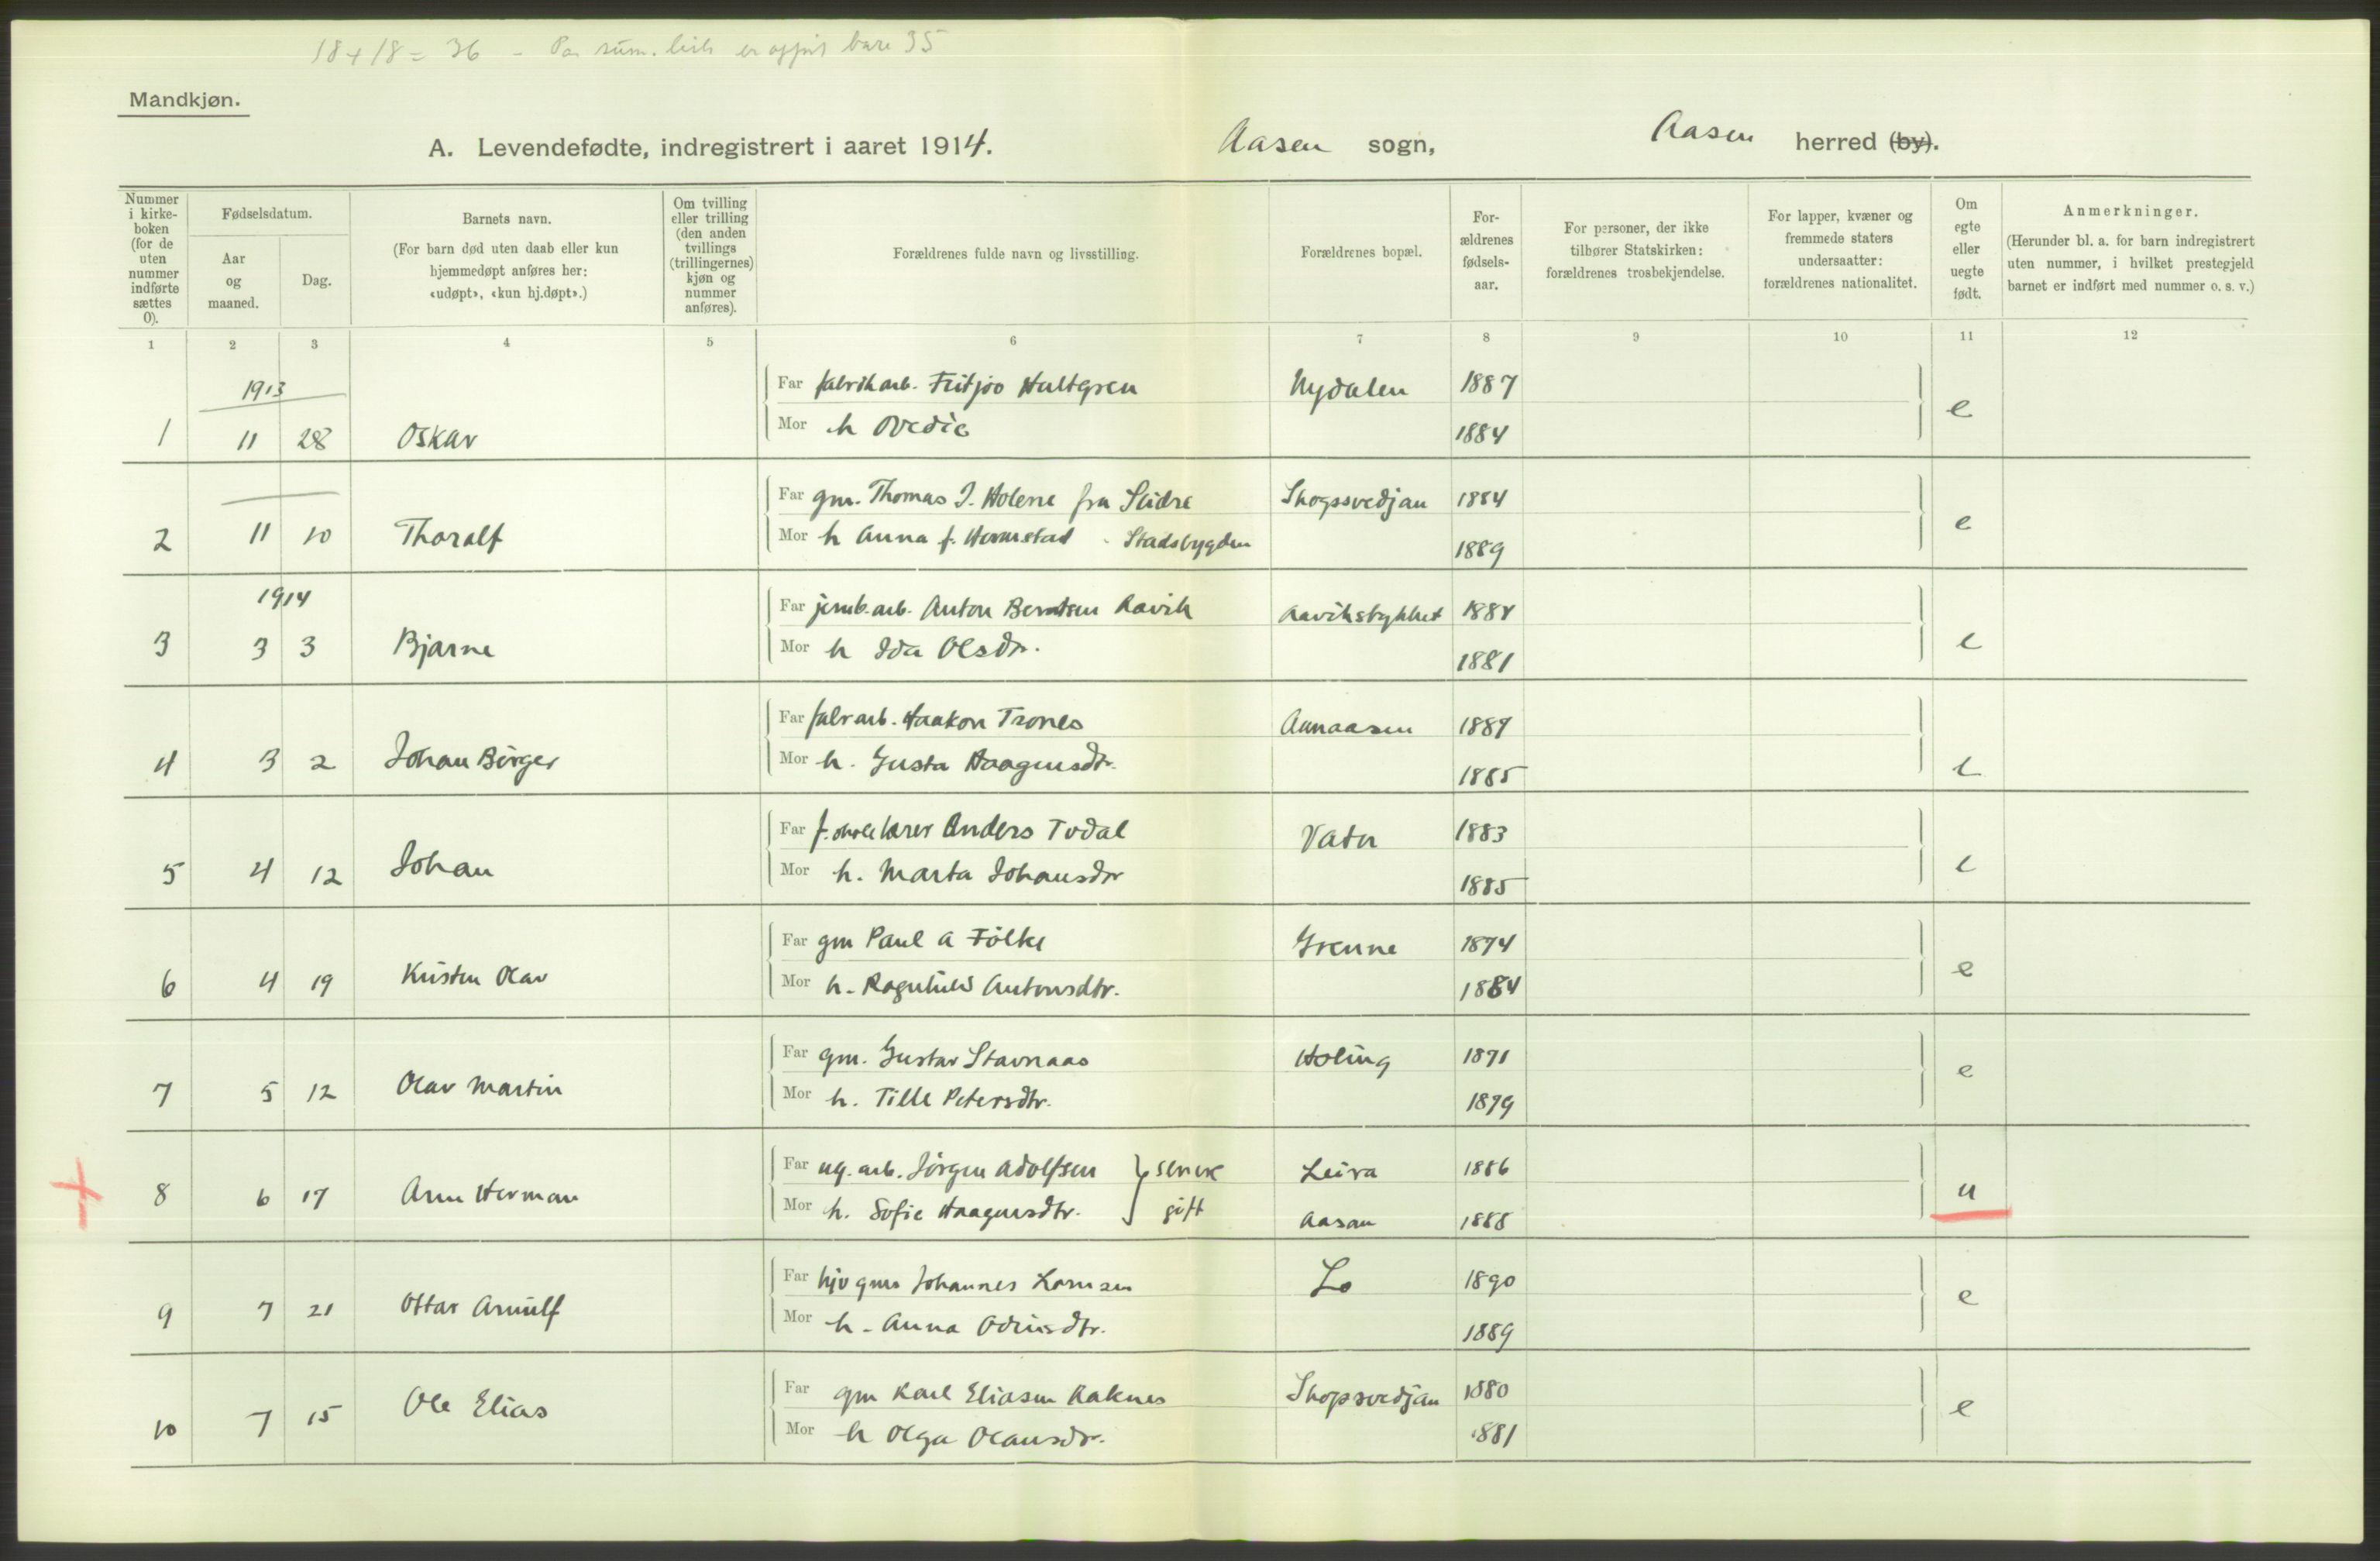 18 + 18 = 36 - Paa sum. liste er opført bare 35
Mandkjøn.
A. Levendefødte, indregistrert i aaret 1914. Aasen sogn, Aasen herred (by).
Nummer i kirke-boken (for de uten nummer indførte sættes 0).
Fødselsdatum.
Aar og maaned.
Dag.
Barnets navn.
(For barn død uten daab eller kun hjemmedøpt anføres her: «udøpt», «kun hj.døpt».)
Om tvilling eller trilling (den anden tvillings (trillingernes) kjøn og nummer anføres).
Forældrenes fulde navn og livsstilling.
Forældrenes bopæl.
For-ældrenes fødsels-aar.
For personer, der ikke tilhører Statskirken: forældrenes trosbekjendelse.
For lapper, kvæner og fremmede staters undersaatter: forældrenes nationalitet.
Om egte eller uegte født.
Anmerkninger.
(Herunder bl. a. for barn indregistrert uten nummer, i hvilket prestegjeld barnet er indført med nummer o. s. v.)
1 2 3 4 5 6 7 8 9 10 11 12
1913
Far fabrikarb. Fritjov Hultgren Nydalen 1887
1 11 28 Oskar Mor h Ovedie 1884 e
Far gm. Thomas J. Holene fra Slidre Skogssvedjan 1884
2 11 10 Thoralf Mor h Anna f. Hermstad - Stadsbygden 1889 e
1914
Far jernb.arb. Anton Berntsen Aavik Aavikstykket 1884
3 3 3 Bjarne Mor h Ida Olsdr. 1881 e
Far fabr arb. Haakon Trones Annaasen 1887
4 3 2 Johan Birger Mor h. Gusta Haagensdtr. 1885 e
Far f. skolelærer Anders Todal Vatn 1883
5 4 12 Johan Mor h. Marta Johansdtr 1885 e
Far gm Paul A Følke Grenne 1874
6 4 19 Kristen Olav Mor h. Ragnhild Antonsdtr. 1884 e
Far gm. Gustav Stavnaas Holing 1871
7 5 12 Olav Martin Mor h. Tille Petersdtr. 1879 e
Far ug. arb. Jørgen Adolfsen } senere Leira 1886
8 6 17 Arne Herman Mor h. Sofie Haagensdtr. gift Aasan 1888 u
Far hjv gm Johannes Larssen Lo 1890
9 7 21 Ottar Arnulf Mor h. Anna Odinsdtr. 1889 e
Far gm Karl Eliasen Raknes Skogssvedjan 1880
10 7 15 Ole Elias Mor h Olga Olausdr. 1881 e